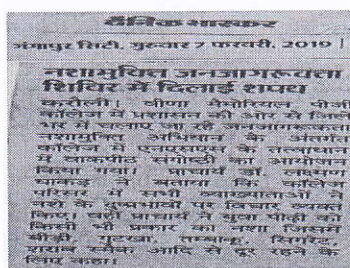 दैनिक भास्कर
गंगापुर सिटी, गुरुवार 7 फरवरी, 2019
नशामुक्ति जनजागरूकता
शिविर में दिलाई शपथ
करौली। वीणा मेमोरियल पीजी
कॉलेज में प्रशासन की ओर से जिले
भर में चलाए जा रहे जनजागरूकता
नशामुक्ति अभियान के अंतर्गत
कॉलेज में एनएसएस के तत्वाधान
में संगोष्ठी का आयोजन
किया गया। प्राचार्य डॉ. लक्ष्मण
धाकड़ ने बताया कि कॉलेज
परिसर में सभी व्याख्याताओं ने
नशे के दुष्प्रभावों पर विचार व्यक्त
किए। वहीं प्राचार्य ने युवा पीढ़ी को
किसी भी प्रकार का नशा जिसमें
बीड़ी, गुटखा, तम्बाकू, सिगरेट,
शराब, स्मैक आदि से दूर रहने के
लिए कहा।